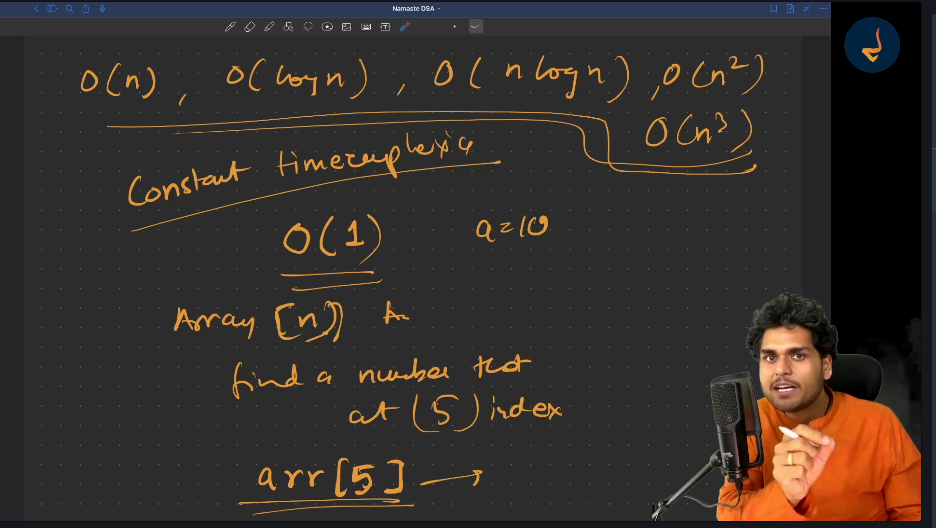 Namaste DSA
O(n) , O(logn) , O(nlogn) , O(n²)
O(n³)
Constant
O(1) a=10
Array [n]
find a number that
at (5) index
arr[5] →